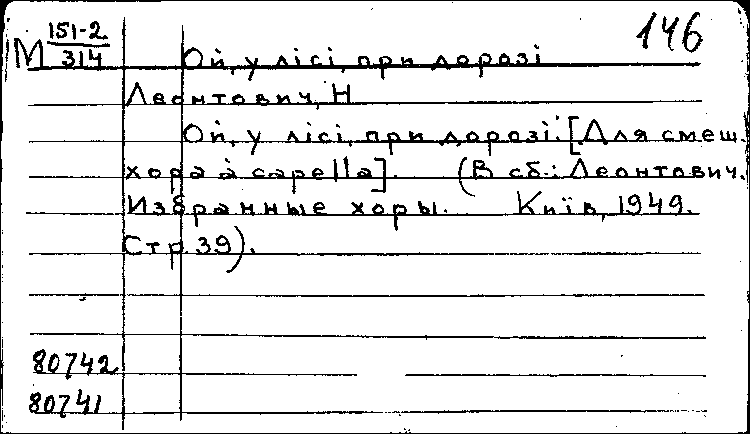 146
М 151-2
314
Ой, у лісі, при дорозі
Леонтович, Н
Ой, у лісі, при дорозі. [Для смеш.
хора à capella]. (В сб.: Леонтович.
Избранные хоры. Київ, 1949.
Стр. 39).
80742
80741